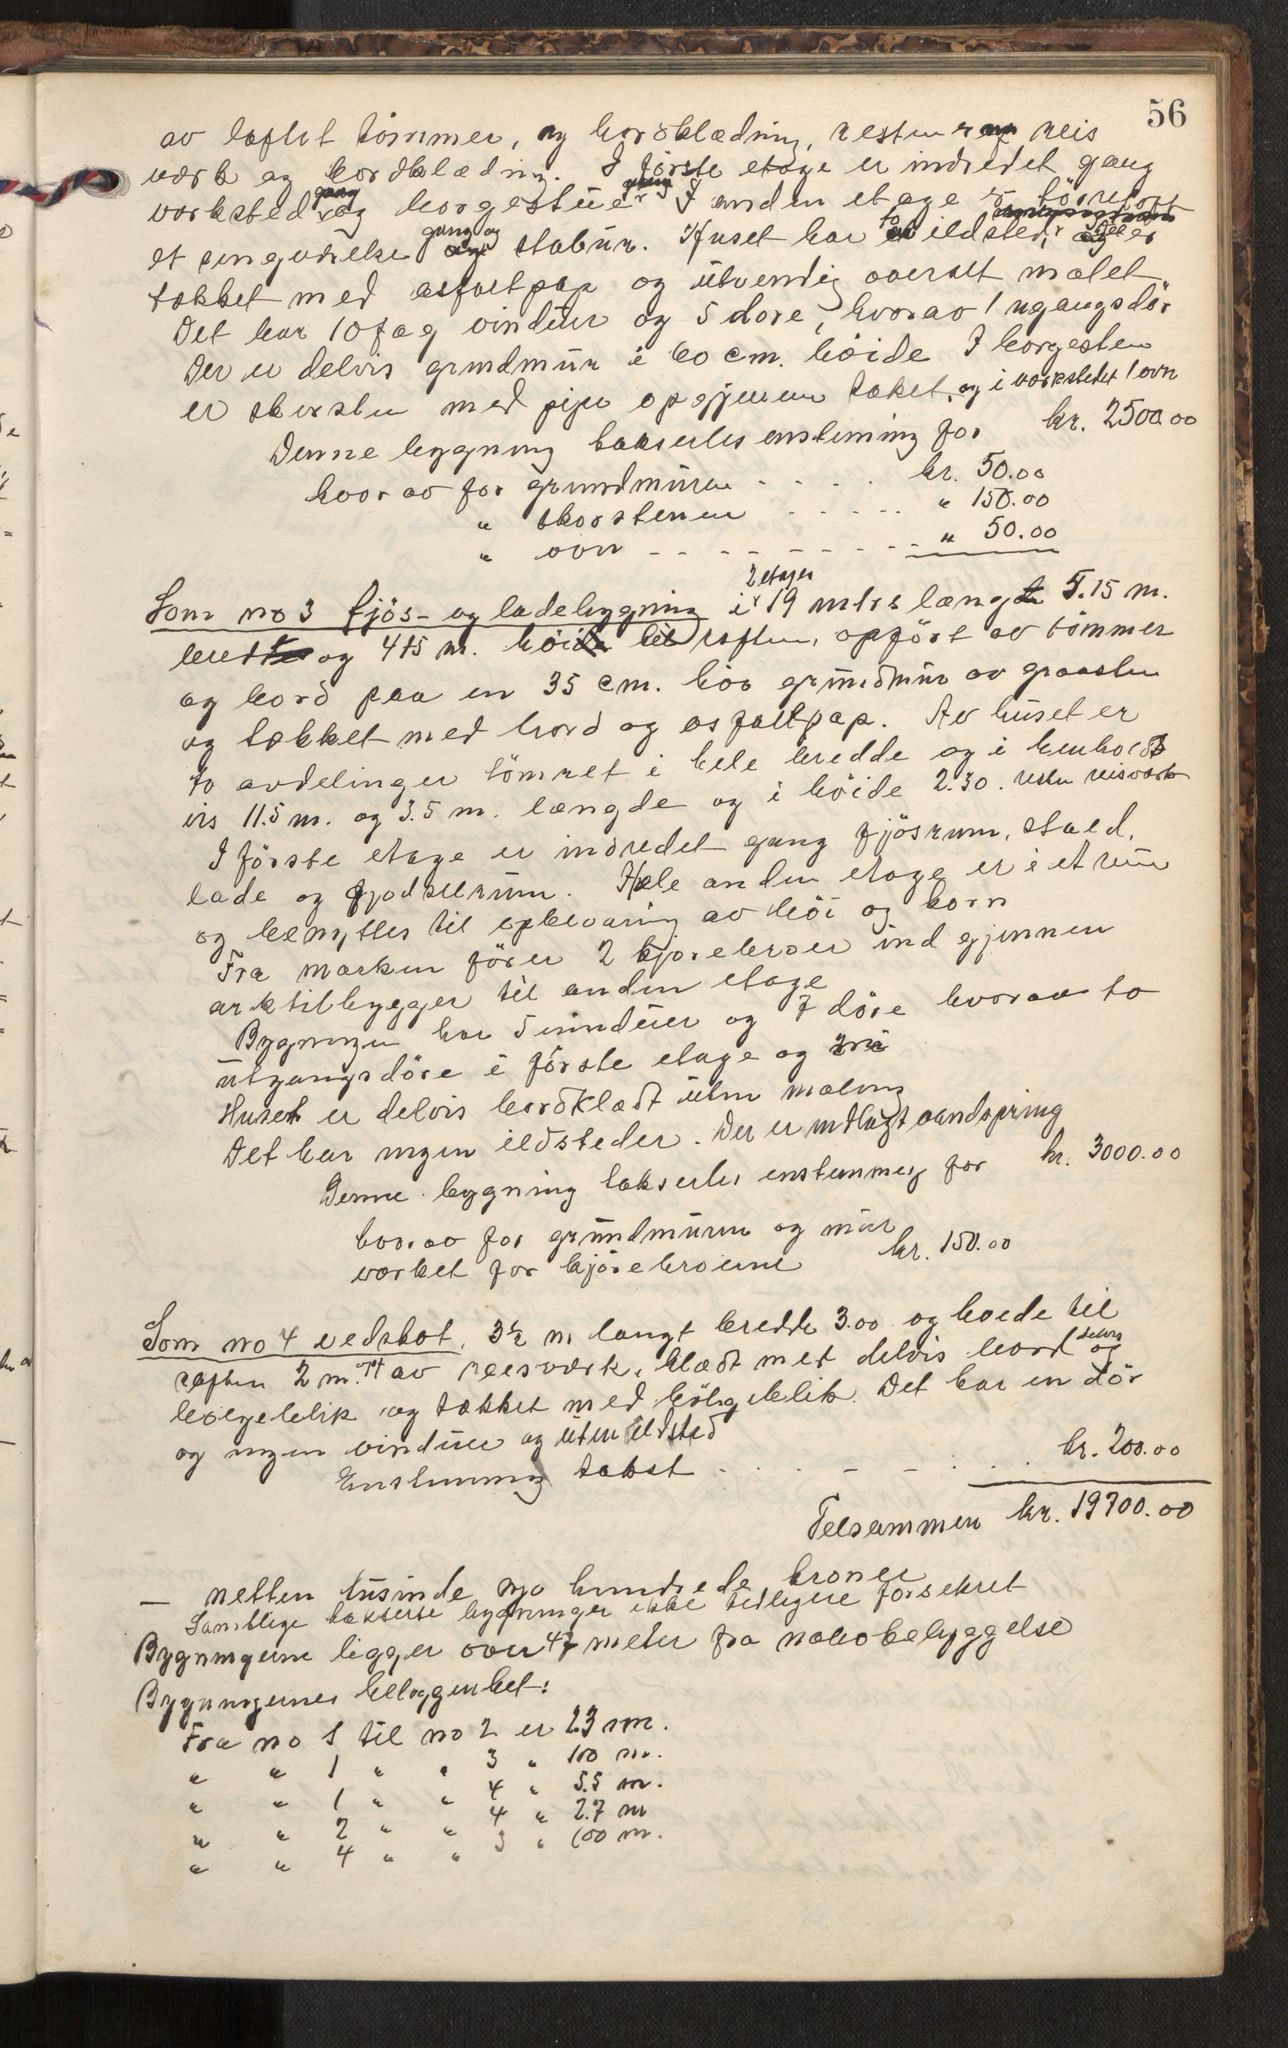 56
av laftet tømmer, og bordklædning, resten er reis
verk og bordklædning. I første etage er indredet gang
verksted gang og borgestue. I anden etage er tørreloft
et sengeværelse gang og stabur. Huset har to ildsteder, og er
tækket med asfaltpap og utvendig overalt malet
Det har 10 fag vinduer og 5 døre, hvorav 1 ugangsdør
Der er delvis grundmur i 60 cm. høide I borgesten
er skorsten med pipe opgjennem taket, og i verkstedet 1 ovn
Denne bygning taksertes enstemmig for kr. 2500.00
hvorav for grundmuren - - - - kr. 50.00
" skorstenen - - - - - " 150.00
" ovn - - - - - - - - " 50.00
Som no 3 fjös- og ladebygning i 2 etager 19 mtrs længde 5.15 m.
bredte og 4.15 m. høide til raften, opført av tømmer
og bord paa en 35 cm. høi grundmur av graasten
og tækket med bord og asfaltpap. Av huset er
to avdelinger tømret i hele bredde og i henholds
vis 11.5 m. og 3.5 m. længde og i høide 2.30. resten reisverk
I første etage er indredet gang fjøsrum, stald,
lade og gjødselrum. Hele anden etage er i et rum
og benyttes til opbevaring av høi og korn
Fra marken fører 2 kjørebroer ind gjennem
arktilbygger til anden etage
Bygningen har 5 vinduer og 7 døre hvorav to
utgangsdøre i første etage og
Huset er delvis bordklædt uten maling
Det har ingen ildsteder. Der er indlagt vandspring
Denne bygning taksertes enstemmig for kr. 3000.00
hvorav for grundmuren og mur
verket for kjørebroerne kr. 150.00
Som no 4 vedskot, 3½ m langt bredde 3.00 og høide til
raften 2 m. av reisverk, klædt met delvis bord og delvis
bølgeblik og tækket med bølgeblik. Det har en dör
og ingen vinduer og uten ildsted
Enstemmig takst - - - - - - kr. 200.00
Tilsammen kr. 19700.00
— nitten tusinde syv hundrede kroner
Samtlige takserte bygninger ikke tidligere forsikret
Bygningerne ligger over 47 meter fra nabobebyggelse
Bygningernes beliggenhet:
Fra no 1 til no 2 er 23 m.
" " 1 " " 3 " 100 m.
" " 1 " " 4 " 5.5 m.
" " 2 " " 4 " 2.7 m
" " 4 " " 3 " 100 m.